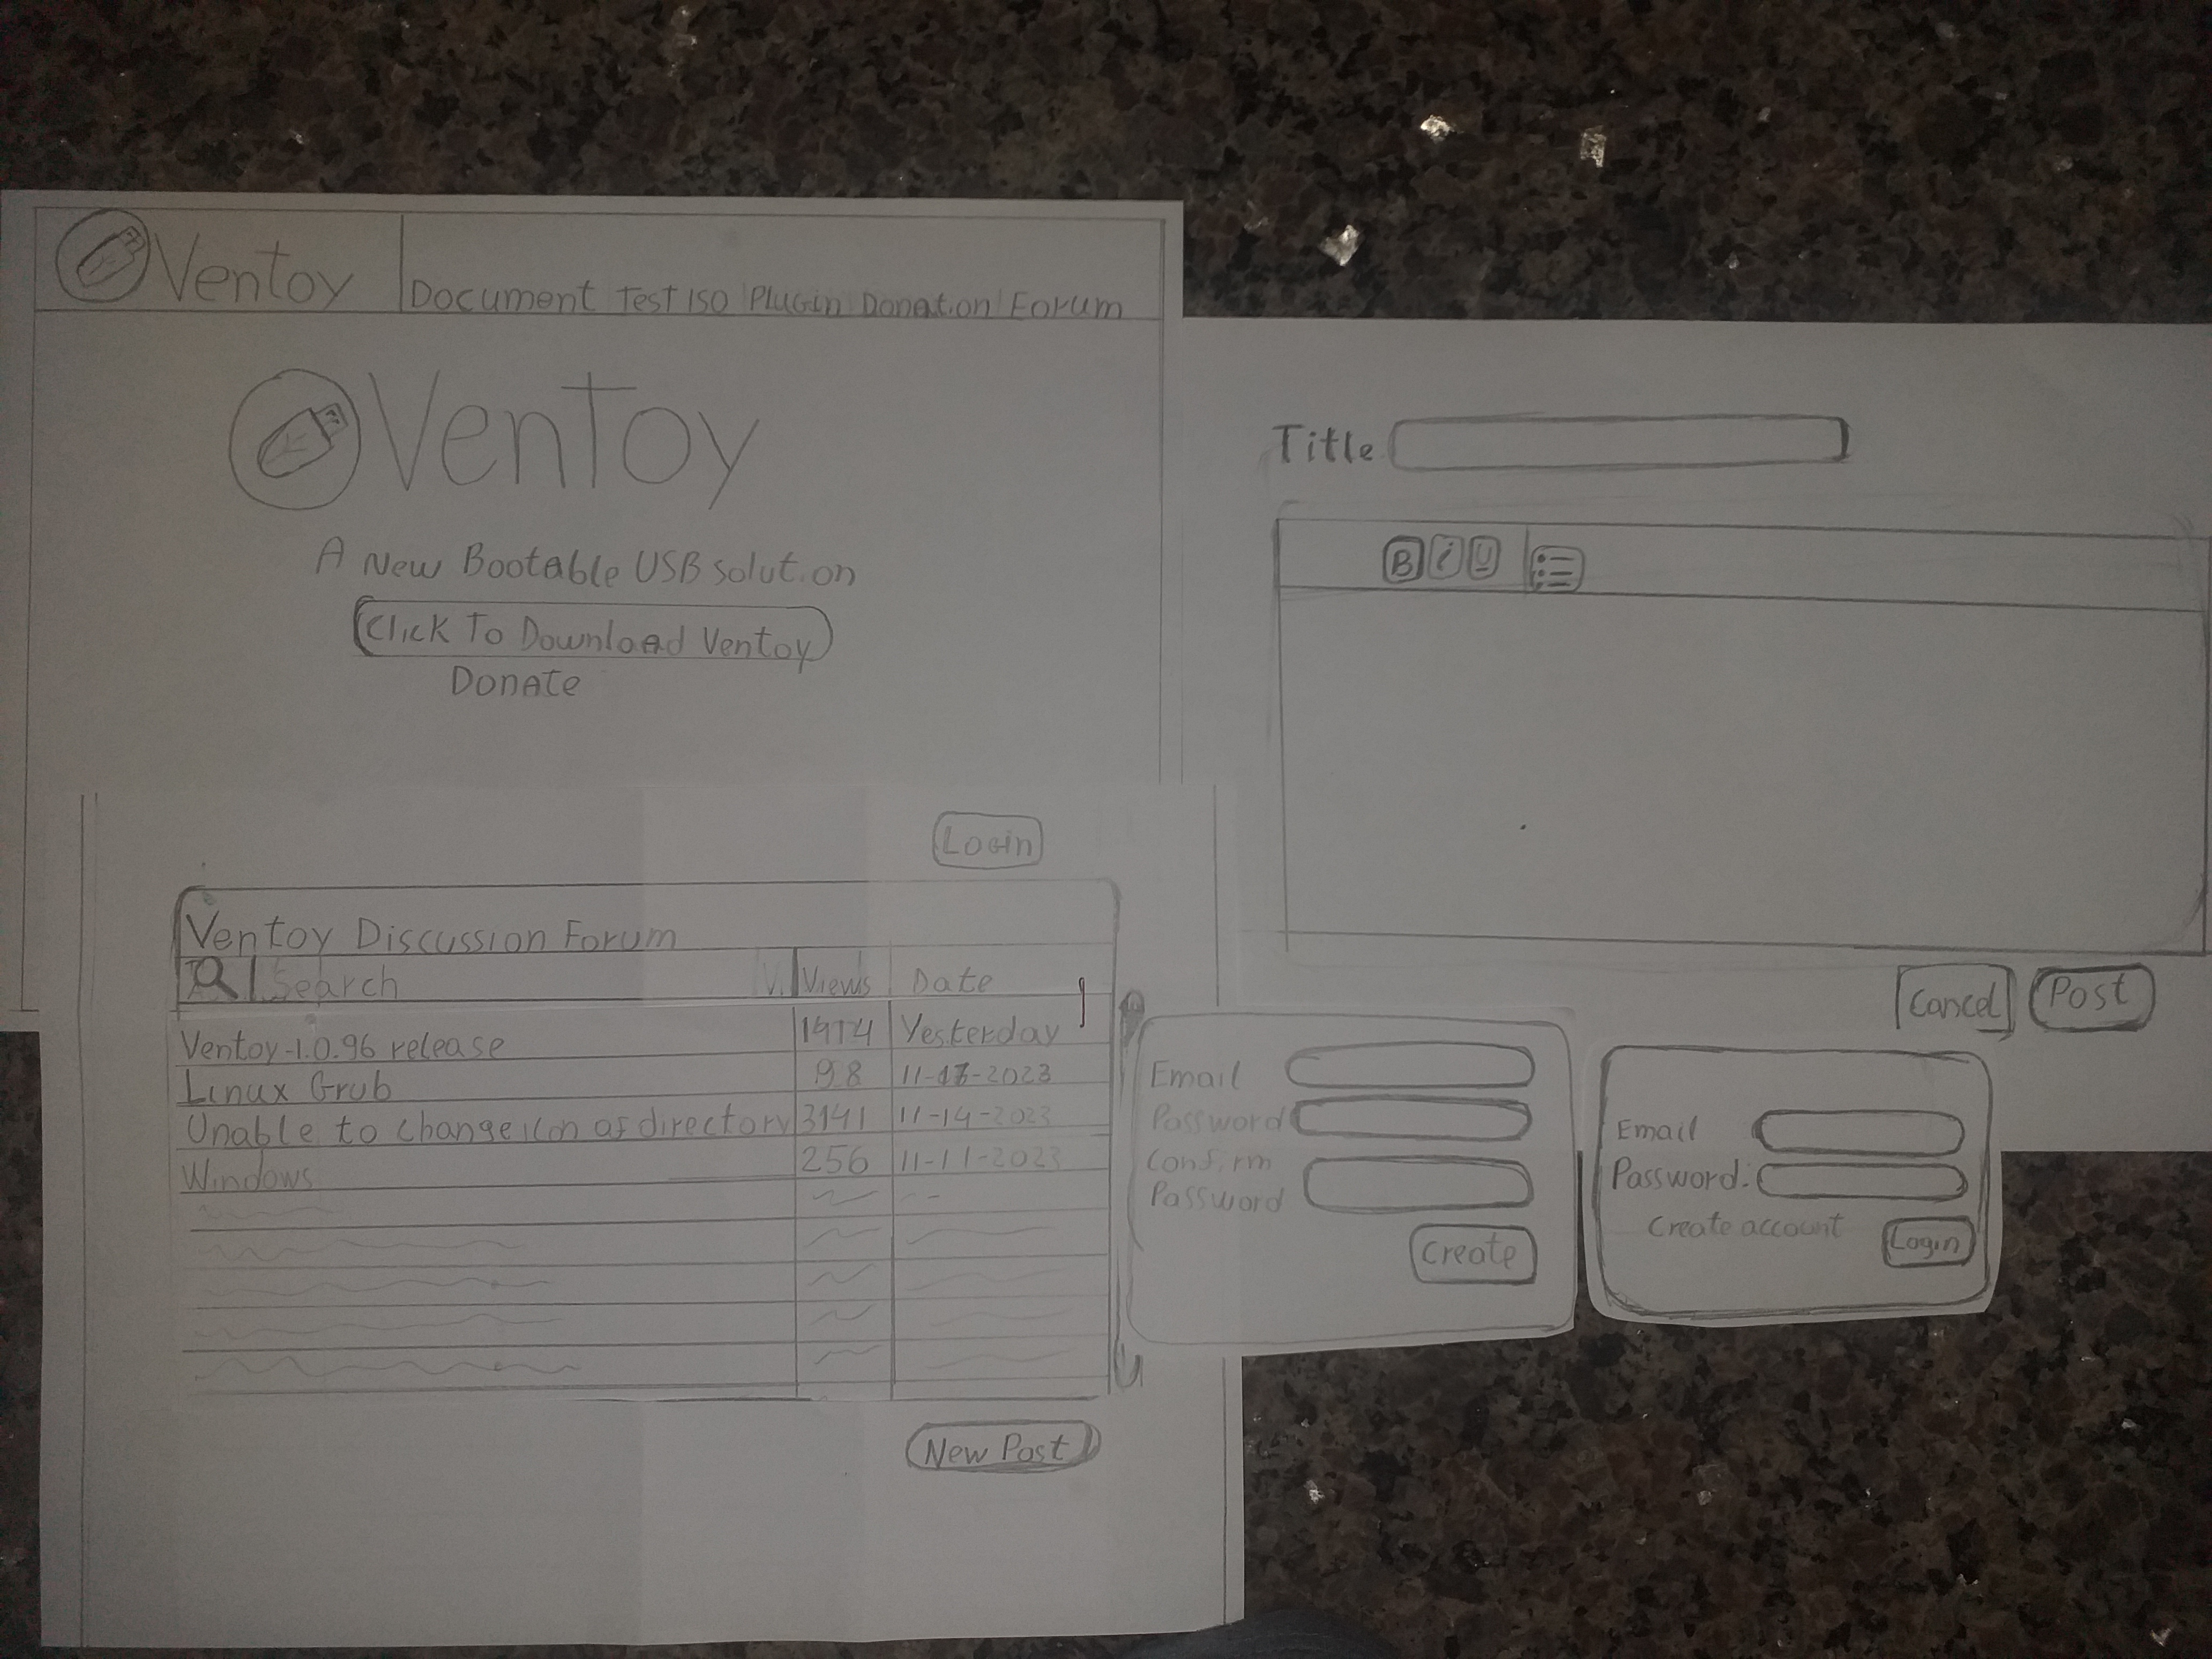 Ventoy
Document Test ISO Plugin Donation Forum
Ventoy
A New Bootable USB solution
Click To Download Ventoy
Donate
Login
Ventoy Discussion Forum
Search Views Date
Ventoy-1.0.96 release 1974 Yesterday
Linux Grub 98
Unable to change icon of directory 3141 11-14-2023
Windows 256 11-11-2023
New Post
Title
B i U
Cancel Post
Email
Password
Confirm
Password
Create
Email
Password:
Create account Login